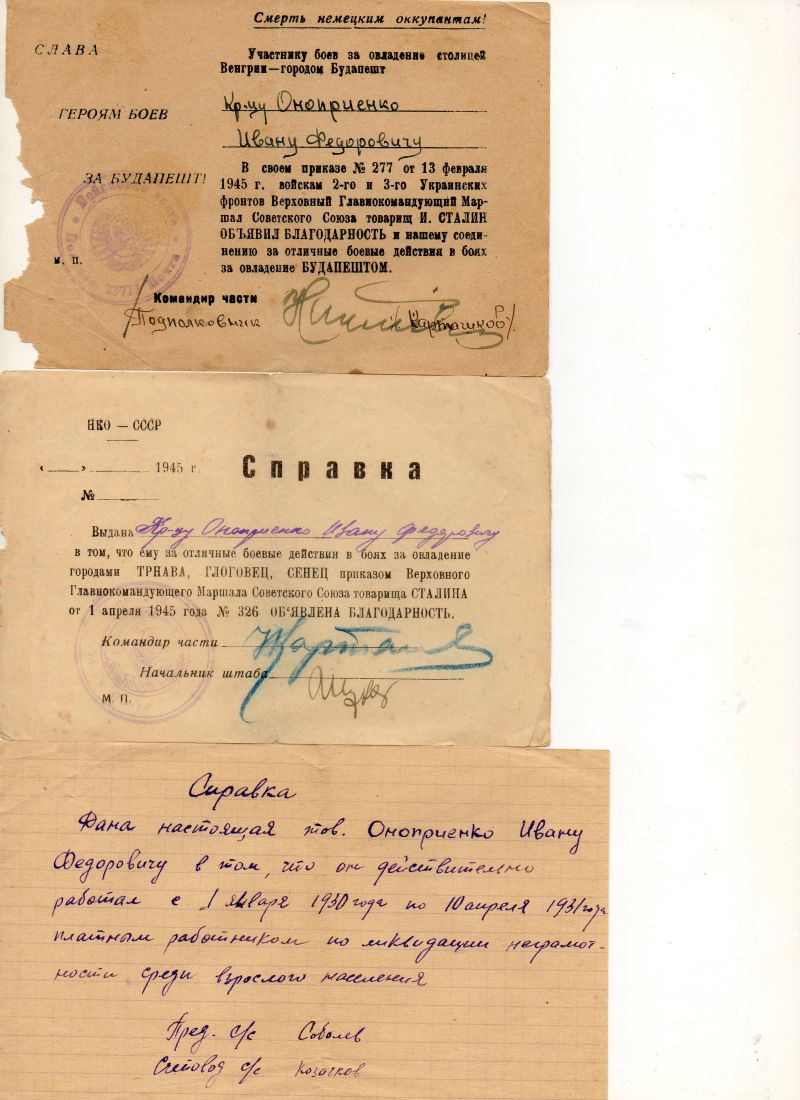 Смерть немецким оккупантам!
СЛАВА
ГЕРОЯМ БОЕВ
ЗА БУДАПЕШТ!
Участнику боев за овладение столицей
Венгрии—городом Будапешт
Кр-цу Оноприенко
Ивану Федоровичу
В своем приказе № 277 от 13 февраля
1945 г. войскам 2-го и 3-го Украинских
фронтов Верховный Главнокомандующий Мар-
шал Советского Союза товарищ И. СТАЛИН
ОБЪЯВИЛ БЛАГОДАРНОСТЬ и нашему соеди-
нению за отличные боевые действия в боях
за овладение БУДАПЕШТОМ.
м. п.
Командир части
Подполковник /Карташков/
НКО — СССР
«  »  1945 г.
№
Справка
Выдана Кр-цу Оноприенко Ивану Федоровичу
в том, что ему за отличные боевые действия в боях за овладение
городами ТРНАВА, ГЛОГОВЕЦ, СЕНЕЦ приказом Верховного
Главнокомандующего Маршала Советского Союза товарища СТАЛИНА
от 1 апреля 1945 года № 326 ОБ'ЯВЛЕНА БЛАГОДАРНОСТЬ.
Командир части
Начальник штаба
М. П.
Справка
Дана настоящая тов. Оноприенко Ивану
Федоровичу в том, что он действительно
работал с 1 января 1930 года по 10 апреля 1931 года
платным работником по ликвидации неграмот-
ности среди взрослого населения
Пред. с/с Соболев
Счетовод с/с Козачков